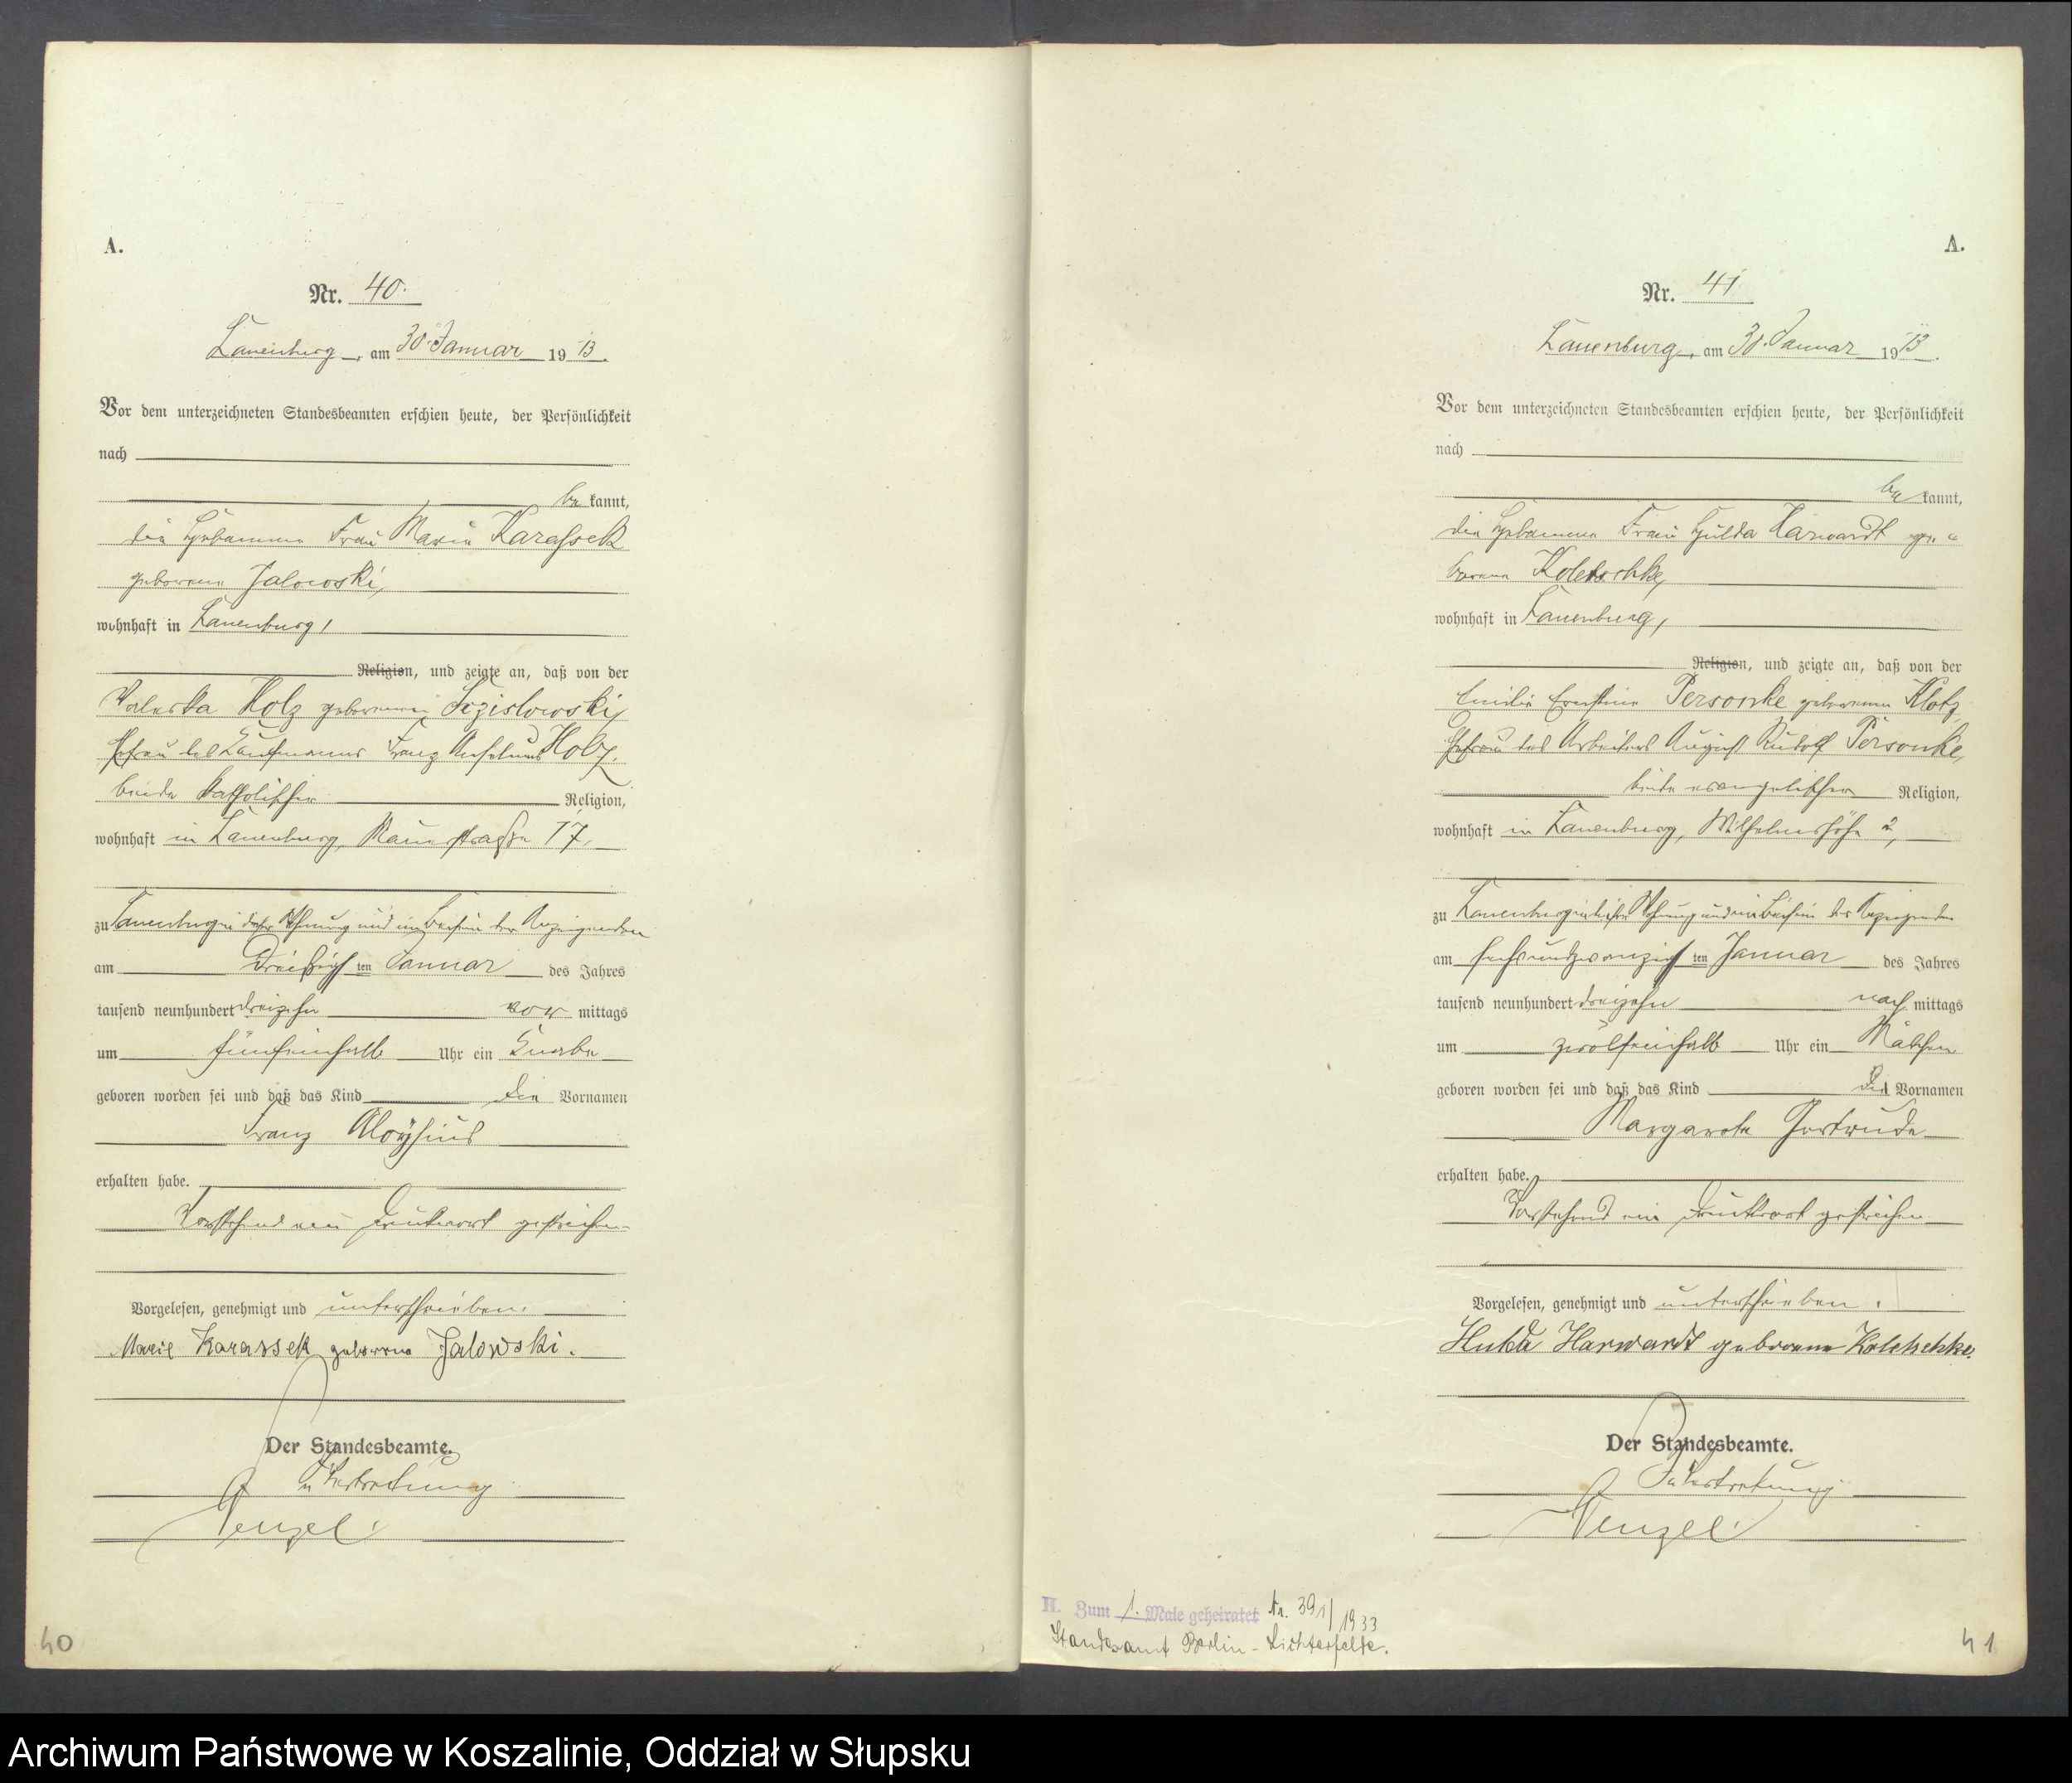 A.
Nr. 40.
Lauenburg, am 30. Januar 1913.
Vor dem unterzeichneten Standesbeamten erschien heute, der Persönlichkeit
nach
be kannt,
die Hebamme Frau Marie Karassek
geborene Jalowski,
wohnhaft in Lauenburg,
Religion, und zeigte an, daß von der
Valeska Holz geborenen
Ehefrau des Kaufmanns Franz Anselmus Holz,
beide katholischer Religion,
wohnhaft in Lauenburg, Mauerstraße 17,
zu Lauenburg in dieser Wohnung und im Beisein der Anzeigenden
am Dreißigsten Januar des Jahres
tausend neunhundert dreizehn vor mittags
um fünfeinhalb Uhr ein Knabe
geboren worden sei und daß das Kind die Vornamen
Franz Aloysius
erhalten habe.
Vorstehend ein Druckwort gestrichen
Vorgelesen, genehmigt und unterschrieben.
Marie Karassek geborene Jalowski.
Der Standesbeamte.
In Vertretung
Wenzel.
40
A.
Nr. 41
Lauenburg, am 30. Januar 1913.
Vor dem unterzeichneten Standesbeamten erschien heute, der Persönlichkeit
nach
be kannt,
die Hebamme Frau Hulda Harwardt ge-
borene Koletschke,
wohnhaft in Lauenburg,
Religion, und zeigte an, daß von der
Emilie Ernstine Personke geborenen Klotz,
Ehefrau des Arbeiters August Rudolf Personke,
beide evangelischer Religion,
wohnhaft in Lauenburg, Wilhelmshöhe 2,
zu Lauenburg in dieser Wohnung und im Beisein der Anzeigenden
am sechsundzwanzigsten Januar des Jahres
tausend neunhundert dreizehn nach mittags
um zwölfeinhalb Uhr ein Mädchen
geboren worden sei und daß das Kind die Vornamen
Margarete Gertrude
erhalten habe.
Vorstehend ein Druckwort gestrichen
Vorgelesen, genehmigt und unterschrieben.
Hulda Harwardt geborene Koletschke.
Der Standesbeamte.
In Vertretung
Wenzel.
H. Zum 1. Male geheiratet Nr. 391/1933
Standesamt Berlin-Lichterfelde.
41
Archiwum Państwowe w Koszalinie, Oddział w Słupsku